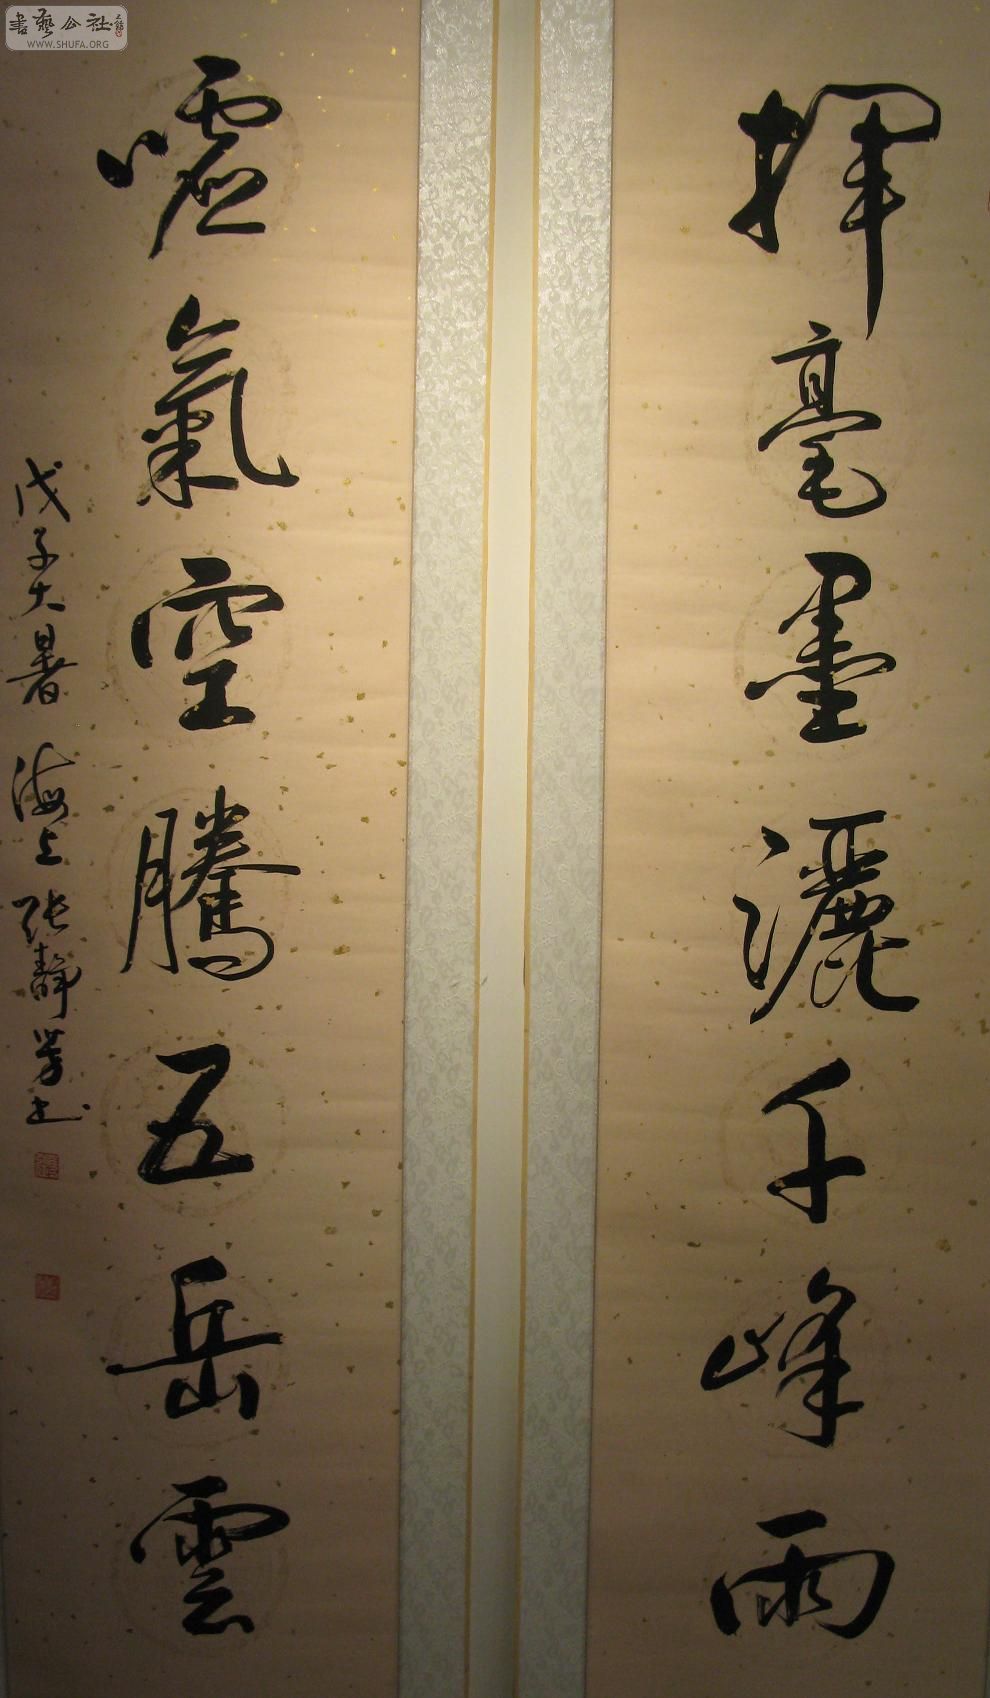 揮毫墨灑千峰雨
噓氣空騰五岳雲
戊子大暑 海上張靜芳書
書藝公社
WWW.SHUFA.ORG